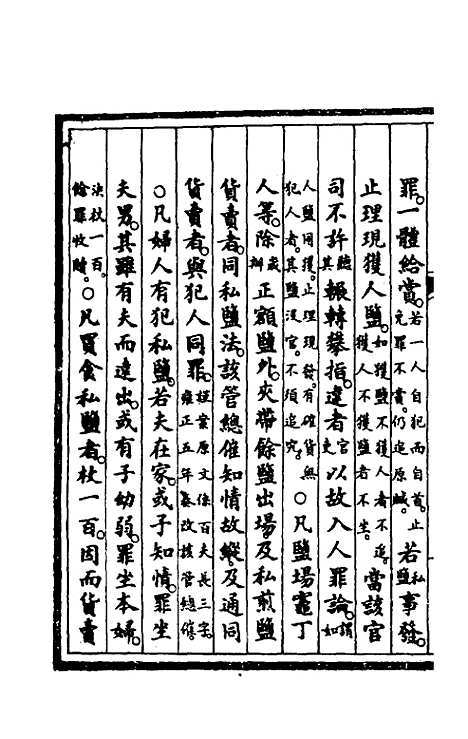 罪。一體給賞。若一人自犯而自首。止免罪不賞。仍追原贓。若私鹽事發。
止理現獲人鹽。如獲鹽不獲人者不追。獲人不獲鹽者不坐。當該官
司不許聽其輾轉攀指。違者官吏以故入人罪論。謂如
人鹽同獲。止理現發。有確貨無犯人者。其鹽沒官。不須追究。○凡鹽場竈丁
人等。除歲辦正額鹽外。夾帶餘鹽出場。及私煎鹽
貨賣者。同私鹽法。該管總催知情故縱。及通同
貨賣者。與犯人同罪。謹案原文係百夫長三字。雍正五年纂改該管總催
○凡婦人有犯私鹽。若夫在家。或子知情。罪坐
夫男。其雖有夫而遠出。或有子幼弱。罪坐本婦。
決杖一百。餘罪收贖。○凡買食私鹽者。杖一百。因而貨賣